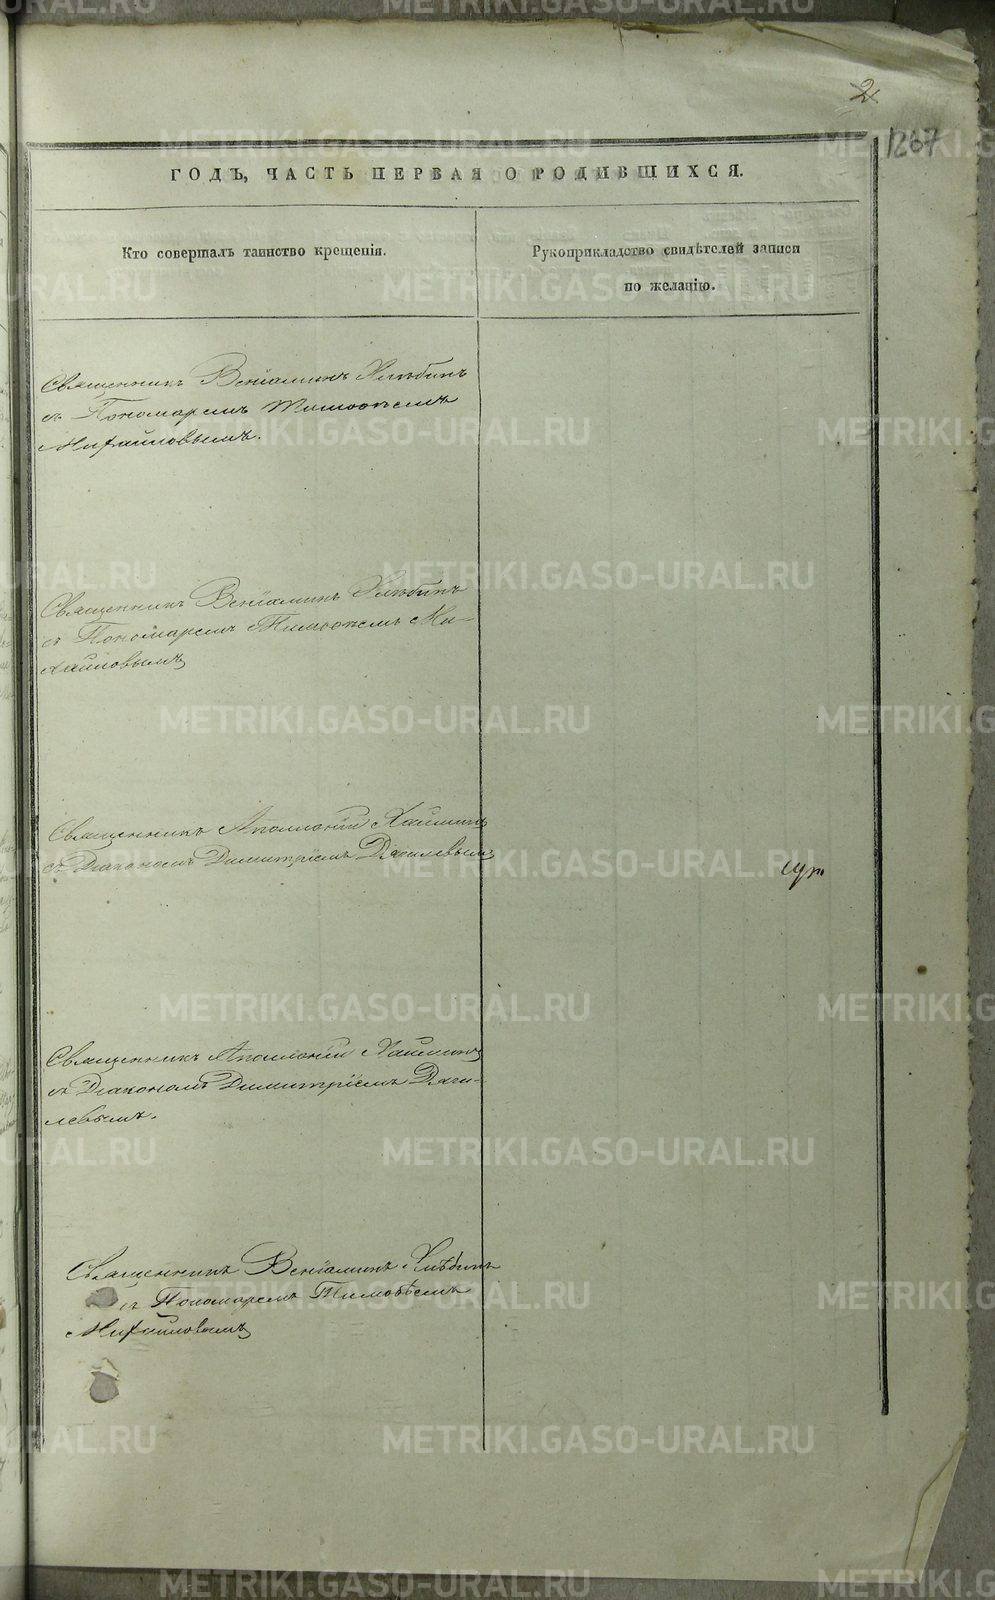 2
1267
ГОДЪ, ЧАСТЬ ПЕРВАЯ О РОДИВШИХСЯ.
Кто совершалъ таинство крещенія.
Рукоприкладство свидѣтелей записи
по желанію.
Священникъ Веніаминъ Хлѣбинъ
съ Пономаремъ Тимоѳеемъ
Михайловымъ.
Священникъ Веніаминъ Хлѣбинъ
съ Пономаремъ Тимоѳеемъ Ми-
хайловымъ
Священникъ Аполлоній
съ Діакономъ Димитріемъ Дягилевымъ
Священникъ Аполлоній
съ Діакономъ Димитріемъ Дяги-
левымъ.
Священникъ Веніаминъ Хлѣбинъ
съ Пономаремъ Тимоѳеемъ
Михайловымъ
METRIKI.GASO-URAL.RU